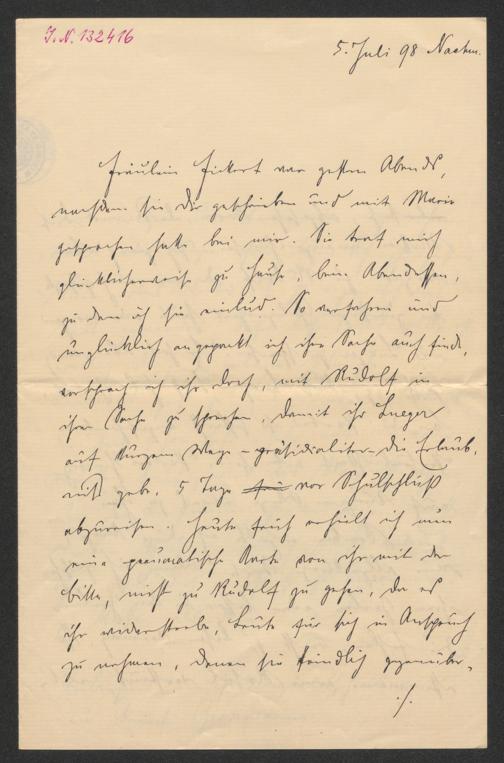 J.N. 132416
5. Juli 98 Nachm.
Fräulein Fickert war gestern Abends,
nachdem sie Dir geschrieben und mit Marie
gesprochen hatte bei mir. Sie traf mich
glücklicherweise zu Hause, beim Abendessen,
zu dem ich sie einlud. So verfahren und
unglücklich angepackt ich ihre Sache auch finde,
versprach ich ihr doch, mit Rudolf in
ihrer Sache zu sprechen, damit ihr Lueger
auf kurzem Wege – präsidialiter – die Erlaub,
niß gebe, 5 Tage vor Schulschluß
abzureisen. Heute früh erhielt ich nun
eine pneumatische Karte von ihr mit der
Bitte, nicht zu Rudolf zu gehen, da es
ihr widerstrebe, Leute für sich in Anspruch
zu nehmen, denen sie feindlich gegenüber-
./.